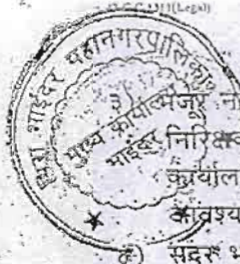 (Legal)
मिरा भाईंदर महानगरपालिका
मुख्य कार्यालय
भाईंदर
मंजूर
निरिक्षक
कार्याल
आवश्य
सदर